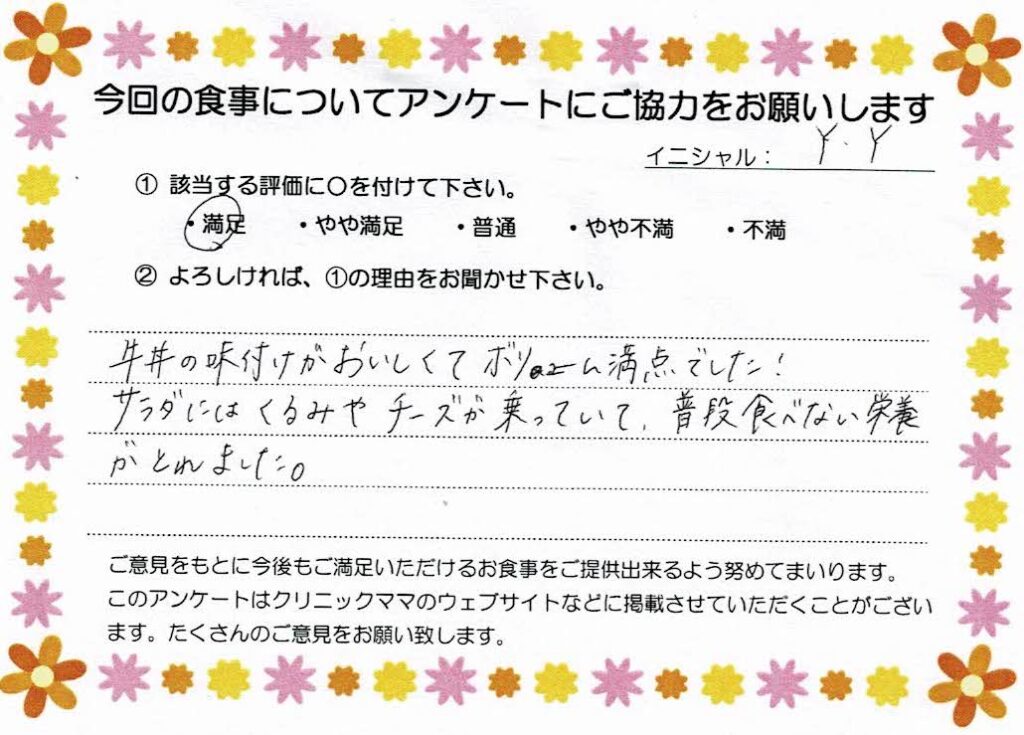 今回の食事についてアンケートにご協力をお願いします
イニシャル： Y.Y
① 該当する評価に〇を付けて下さい。
・満足 ・やや満足 ・普通 ・やや不満 ・不満
② よろしければ、①の理由をお聞かせ下さい。
牛丼の味付けがおいしくてボリューム満点でした！
サラダにはくるみやチーズが乗っていて、普段食べない栄養
がとれました。
ご意見をもとに今後もご満足いただけるお食事をご提供出来るよう努めてまいります。
このアンケートはクリニックママのウェブサイトなどに掲載させていただくことがござい
ます。たくさんのご意見をお願い致します。